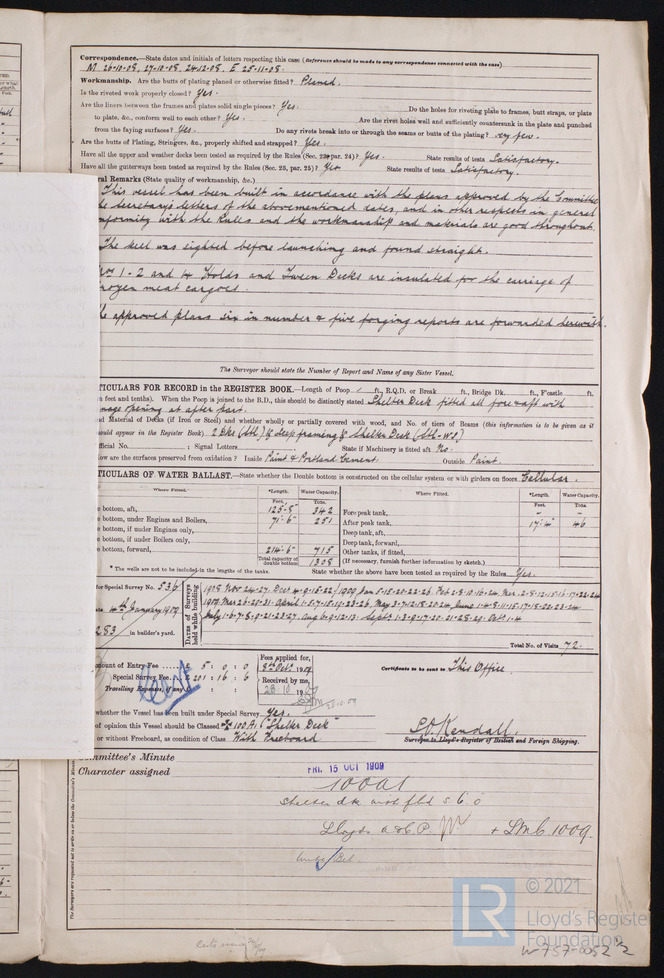 Correspondence.—State dates and initials of letters respecting this case (Reference should be made to any correspondence connected with the case)
M 26·10·08, 27·10·08, 24·12·08, E 25·11·08.
Workmanship. Are the butts of plating planed or otherwise fitted? Planed.
Is the riveted work properly closed? Yes.
Are the liners between the frames and plates solid single pieces? Yes. Do the holes for riveting plate to frames, butt straps, or plate
to plate, &c., conform well to each other? Yes. Are the rivet holes well and sufficiently countersunk in the plate and punched
from the faying surfaces? Yes. Do any rivets break into or through the seams or butts of the plating? very few.
Are the butts of Plating, Stringers, &c., properly shifted and strapped? Yes.
Have all the upper and weather decks been tested as required by the Rules (Sec. par. 24)? Yes. State results of tests Satisfactory.
Have all the gutterways been tested as required by the Rules (Sec. 25, par. 25)? Yes State results of tests Satisfactory.
ral Remarks (State quality of workmanship, &c.)
This vessel has been built in accordance with the plans approved by the Committee
he Secretary's letters of the abovementioned dates, and in other respects in general
nformity with the Rules and the workmanship and materials are good throughout.
The keel was sighted before launching and found straight.
Nos 1 - 2 and 4 Holds and Tween Decks are insulated for the carriage of
rozen meat cargoes.
he approved plans six in number & five forging reports are forwarded herewith.
The Surveyor should state the Number of Report and Name of any Sister Vessel.
TICULARS FOR RECORD in the REGISTER BOOK.—Length of Poop ft., R.Q.D. or Break ft., Bridge Dk. ft., F'castle ft.
n feet and tenths). When the Poop is joined to the B.D., this should be distinctly stated Shelter Deck fitted all fore & aft with
nage opening at after part.
nd Material of Decks (if Iron or Steel) and whether wholly or partially covered with wood, and No. of tiers of Beams (this information is to be given as it
ould appear in Register Book) 2 Dks (Stl.) & deep framing & Shelter Deck (Stl-W.S.)
fficial No. ; Signal Letters State if Machinery is fitted aft No.
ow are the surfaces preserved from oxidation? Inside Paint & Portland Cement. Outside Paint.
TICULARS OF WATER BALLAST.—State whether the Double bottom is constructed on the cellular system or with girders on floors. Cellular.
Where Fitted. *Length. Water Capacity. Where Fitted. *Length. Water Capacity.
Feet. Tons. Feet. Tons.
e bottom, aft, 125-5 342 Fore peak tank, - -
e bottom, under Engines and Boilers, 71-6 251 After peak tank, 17-4 46
e bottom, if under Engines only, Deep tank, aft,
e bottom, if under Boilers only, Deep tank, forward,
e bottom, forward, 214-6 715 Other tanks, if fitted,
Total capacity of double bottom 1308 (If necessary, furnish further information by sketch.)
* The wells are not to be included in the lengths of the tanks. State whether the above have been tested as required by the Rules Yes.
or Special Survey No. 536
4th January 1909
283 in builder's yard.
Dates of Surveys held while building
1908 Nov 24·27. Dec 4·9·15·22/1909 Jan 5·15·20·22·26 Feb 2·8·10·16·24 Mar. 2·8·12·15·16·17·22·24
1909 Mar 26·30·31 April 1·5·7·15·19·23·26 May 3·7·12·18·20·24 June 1·4·8·11·15·17·18·20·23·24
July 1·6·7·8·9·21·23·27. Aug 6·9·12·13. Sept 1·3·9·17·20·21·28·29. Oct 1·4
Total No. of Visits 72.
mount of Entry Fee £ 5 : 0 : 0
Special Survey Fee £ 201 : 16 : 6
Travelling Expenses, if any £ : :
Fees applied for, 8th Oct. 1909
Received by me, 28 10 19
Certificate to be sent to This Office
whether the Vessel has been built under Special Survey Yes.
of opinion this Vessel should be Classed 100 A1 "Shelter Deck"
or without Freeboard, as condition of Class With Freeboard
Kendall.
Surveyor to Lloyd's Register of British and Foreign Shipping.
ommittee's Minute FRI. 15 OCT 1909
Character assigned 100A1
Shelter dk with fbd
Lloyds A & C P. + LMC 10.09.
© 2021
LR
Lloyd's Registe
Foundation
W-757-0052 1/2